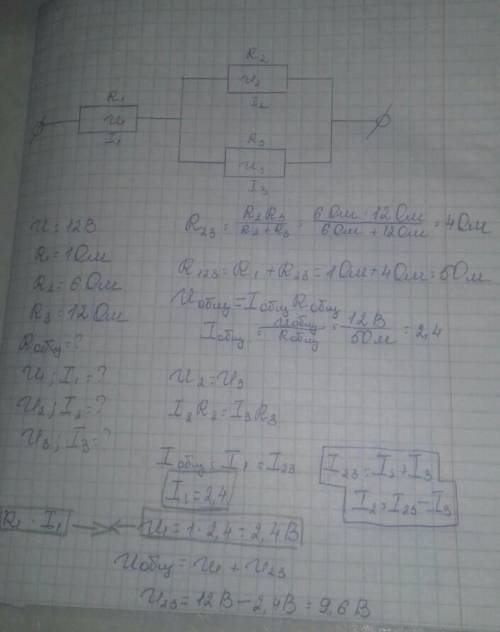 R₂
U₂
I₂
R₁
U₁
I₁
R₃
U₃
I₃
U = 12В
R₁ = 1Ом
R₂ = 6Ом
R₃ = 12Ом
Rобщ = ?
U₁; I₁ = ?
U₂; I₂ = ?
U₃; I₃ = ?
R₂₃ = R₂R₃ / R₂+R₃ = 6Ом · 12Ом / 6Ом + 12Ом = 4Ом
R₁₂₃ = R₁ + R₂₃ = 1Ом + 4Ом = 5Ом
Uобщ = Iобщ Rобщ
Iобщ = Uобщ / Rобщ = 12В / 5Ом = 2,4
U₂ = U₃
I₂R₂ = I₃R₃
Iобщ = I₁ = I₂₃
I₂₃ = I₂ + I₃
I₁ = 2,4
I₂ = I₂₃ − I₃
R₁ · I₁
U₁ = 1 · 2,4 = 2,4В
Uобщ = U₁ + U₂₃
U₂₃ = 12В − 2,4В = 9,6В